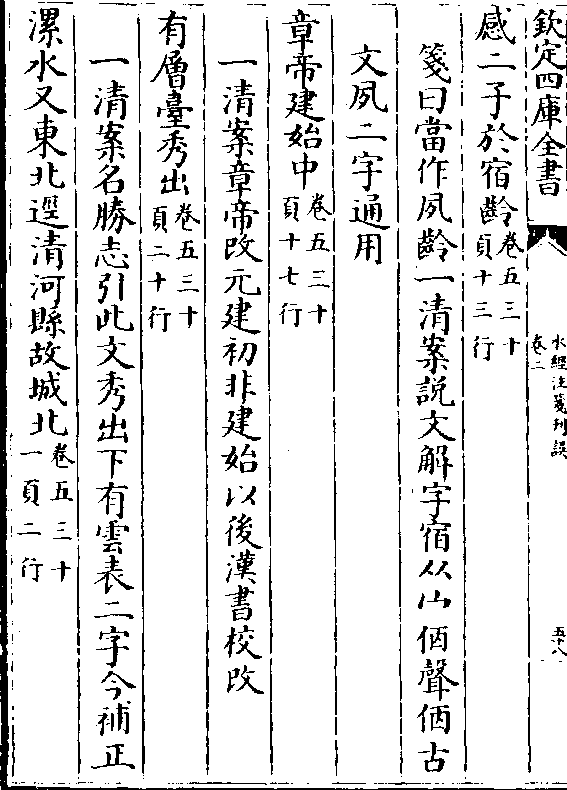 欽定四庫全書
水經注箋刊誤
卷二
五十八
感二子於宿齡卷五三十頁十三行
箋曰當作夙齡一清案説文解字宿从宀㐁聲㐁古
文夙二字通用
章帝建始中卷五三十頁十七行
一清案章帝改元建初非建始以後漢書校改
有層臺秀出卷五三十頁二十行
一清案名勝志引此文秀出下有雲表二字今補正
漯水又東北逕清河縣故城北卷五三十一頁二行